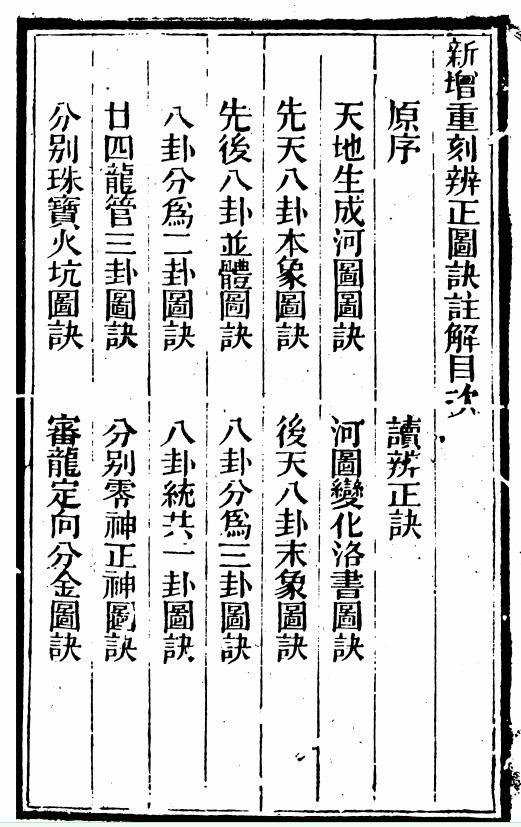 新增重刻辨正圖訣註解目次
原序
讀辨正訣
天地生成河圖圖訣
河圖變化洛書圖訣
先天八卦本象圖訣
後天八卦末象圖訣
先後八卦並體圖訣
八卦分爲三卦圖訣
八卦分爲二卦圖訣
八卦統共一卦圖訣
廿四龍管三卦圖訣
分別零神正神圖訣
分別珠寶火坑圖訣
審龍定向分金圖訣